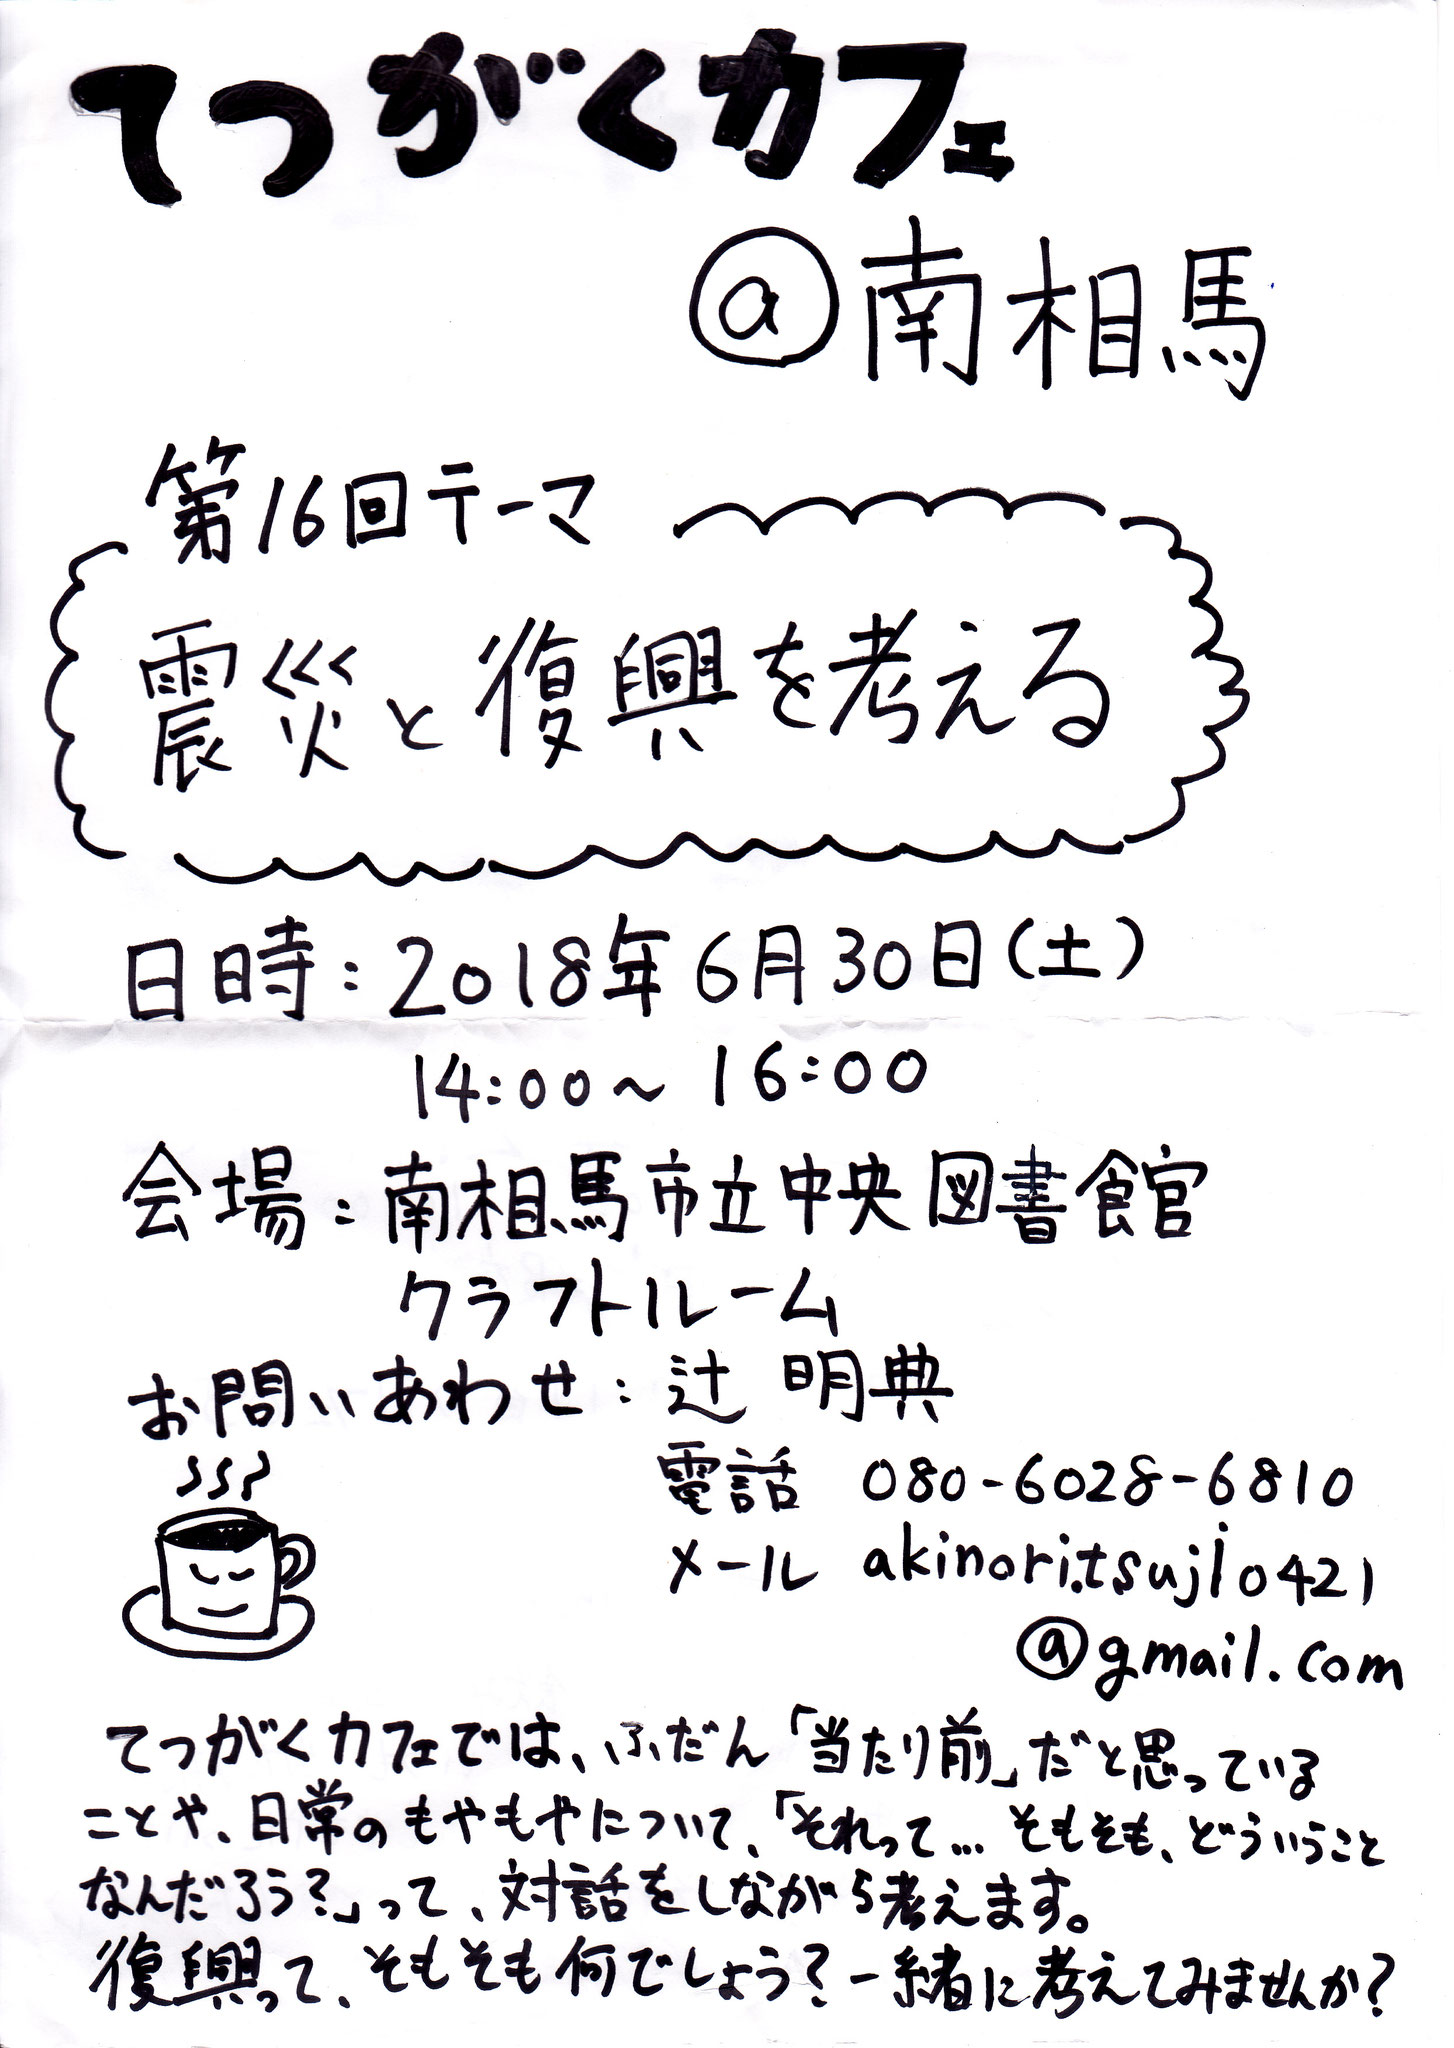 てつがくカフェ
@南相馬
第16回テーマ
震災と復興を考える
日時：2018年6月30日(土)
14:00～16:00
会場：南相馬市立中央図書館
クラフトルーム
お問いあわせ：辻 明典
電話 080-6028-6810
メール akinori.tsuji0421
@gmail.com
てつがくカフェでは、ふだん「当たり前」だと思っている
ことや、日常のもやもやについて、「それって… そもそも、どういうこと
なんだろう？」って、対話をしながら考えます。
復興って、そもそも何でしょう？一緒に考えてみませんか？